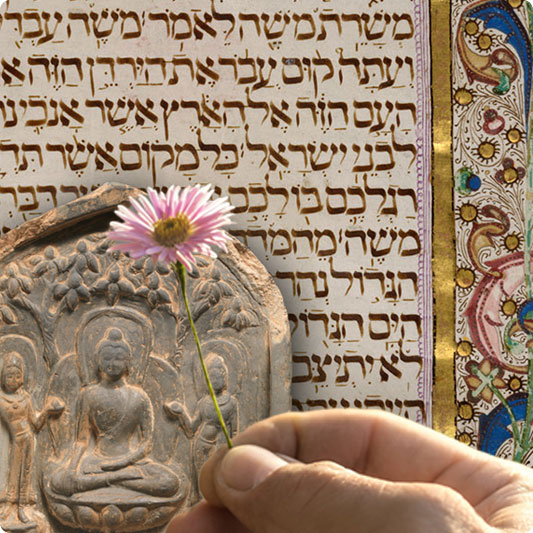 מְשָׁרֵת מֹשֶׁה לֵאמֹר מֹשֶׁה עַבְדִּי
וְעַתָּה קוּם עֲבֹר אֶת הַיַּרְדֵּן הַזֶּה
הָעָם הַזֶּה אֶל הָאָרֶץ אֲשֶׁר אָנֹכִי
לִבְנֵי יִשְׂרָאֵל כָּל מָקוֹם אֲשֶׁר
רַגְלְכֶם בּוֹ לָכֶם
מֹשֶׁה מֵהַמִּדְבָּר
הַגָּדוֹל נְהַר
הַיָּם הַגָּדוֹל
לֹא יִתְיַצֵּב